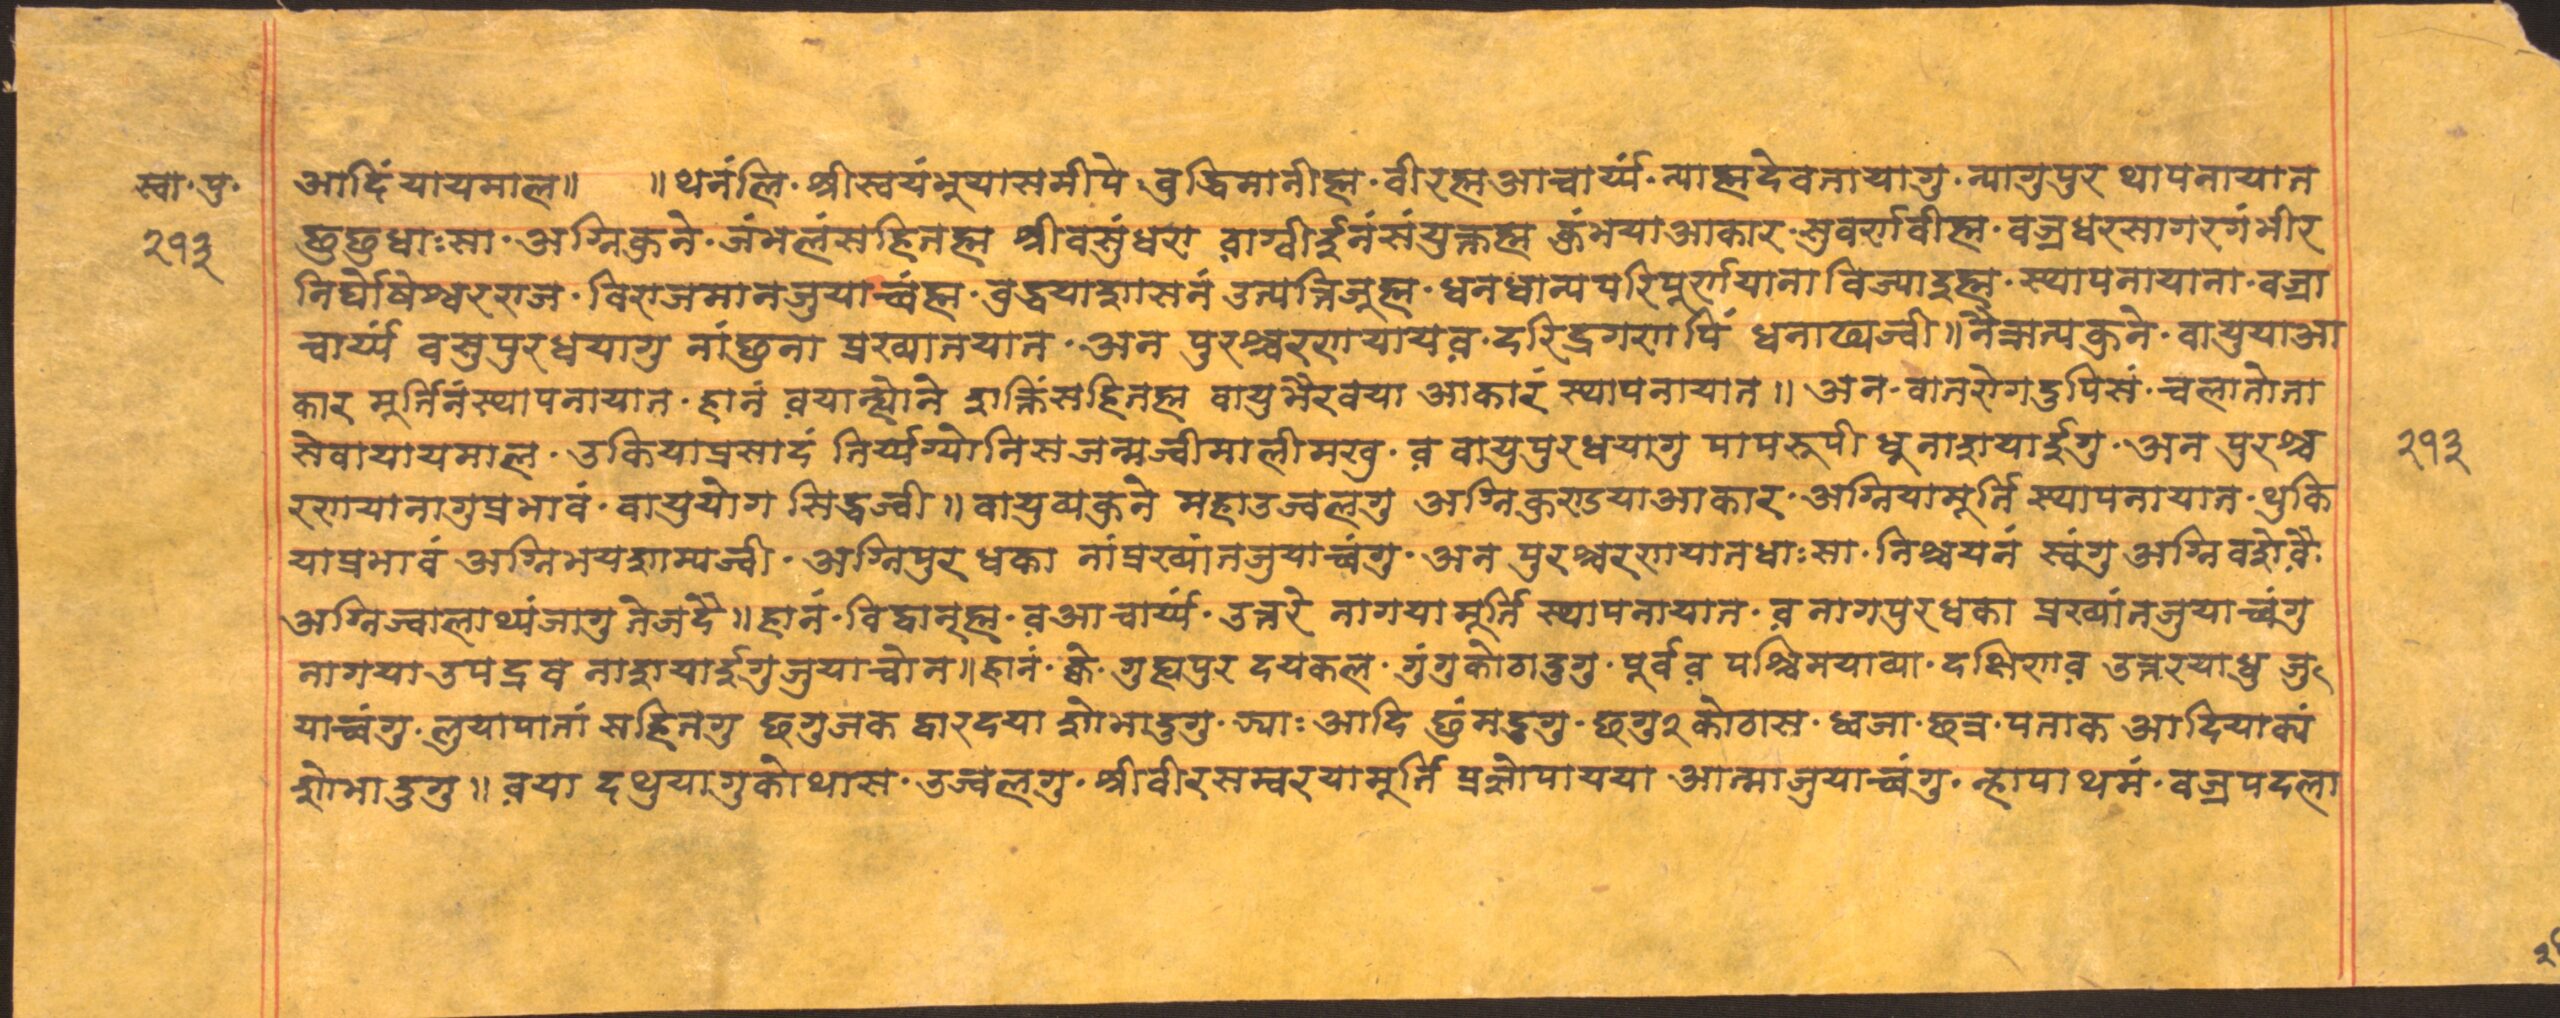 स्वा॰ पु॰
२१३
आदिं यायमाल॥ ॥थनंलि॰ श्रीस्वयंभूयासमीपे बुद्धिमानीह्म॰ वीरह्मआचार्य्यं॰ न्याह्मदेवतायागु॰ न्यागुपुर थापनायात
छुछुधाःसा॰ अग्निकुने॰ जंभलंसहितह्म श्रीवसुंधरा वाग्वीर्ईनंसंयुक्तह्म कुंभयाआकार॰ सुवर्णवीह्म॰ वज्रधरसागरगंभीर
निर्घोषेश्वरराज॰ विराजमानजुयाच्वंह्म॰ बुद्धयाशासनं उत्पन्निजूह्म॰ धनधान्यपरिपुर्णयाना विज्यादुह्म॰ स्थापनायाना॰ वज्रा
चार्य्यं वसुपुरधयागु नांछुना प्रख्यातयात॰ अन पुरश्चरणयायेव॰ दरिद्रगणपिं धनाढ्यज्वी॥ नैऋत्यकुने॰ वायुयाआ
कार मूर्तिनंस्थापनायात॰ हानं वयान्ह्योने शक्तिंसहितह्म वायुभैरवया आकारं स्थापनायात॥ अन॰ वातरोगदुपिसं॰ च्वलानोना
सेवायायमाल॰ उकियाप्रसादं तिर्य्यग्योनिसजन्मज्वीमालीमखु॰ व वायुपुरधयागु पापरूपी धुनाशयार्ईगु॰ अन पुरश्च
२१३
रणयानागुप्रभावं॰ वायुयोग सिद्धज्वी॥ वायुव्यकुने महाउज्वलगु अग्निकुण्डयाआकार॰ अग्नियामूर्ति स्थापनायात॰ थुकि
याप्रभावं अग्निभयशाम्यज्वी॰ अग्निपुर धका नांप्रख्यांतजुयाच्वंगु॰ अन पुरश्चरणयातधाःसा॰ निश्चयनं स्वंगु अग्निवशेवै
अग्निज्वालाथ्यंजागु तेजदै॥ हानं॰ विद्वान्ह्म॰ वआचार्य्यं॰ उत्तरे नागयामूर्ति स्थापनायात॰ व नागपुरधका प्रख्यांतजुयाच्वंगु
नागया उपद्रव नाशयार्ईगुजुयाचोन॥ हानं॰ क्वे॰ गुह्यपुर दयकल॰ गुंगुकोठादुगु॰ पूर्वव पश्चिमयाव्या॰ दक्षिणव उत्तरयाधु जु
याच्वंगु॰ लुयापातां सहितगु छगुजक द्वारदया शोभादुगु॰ ज्याः आदि छुंमदुगु॰ छगु२कोठास॰ ध्वजा॰ छत्र॰ पताक आदियाक्यं
शोभादुगु॥ वया दथुयागुकोथास॰ उज्वलगु॰ श्रीवीरसम्वरयामूर्ति प्रज्ञोपायया आत्माजुयाच्वंगु॰ न्हापा थमं॰ वज्रपदला